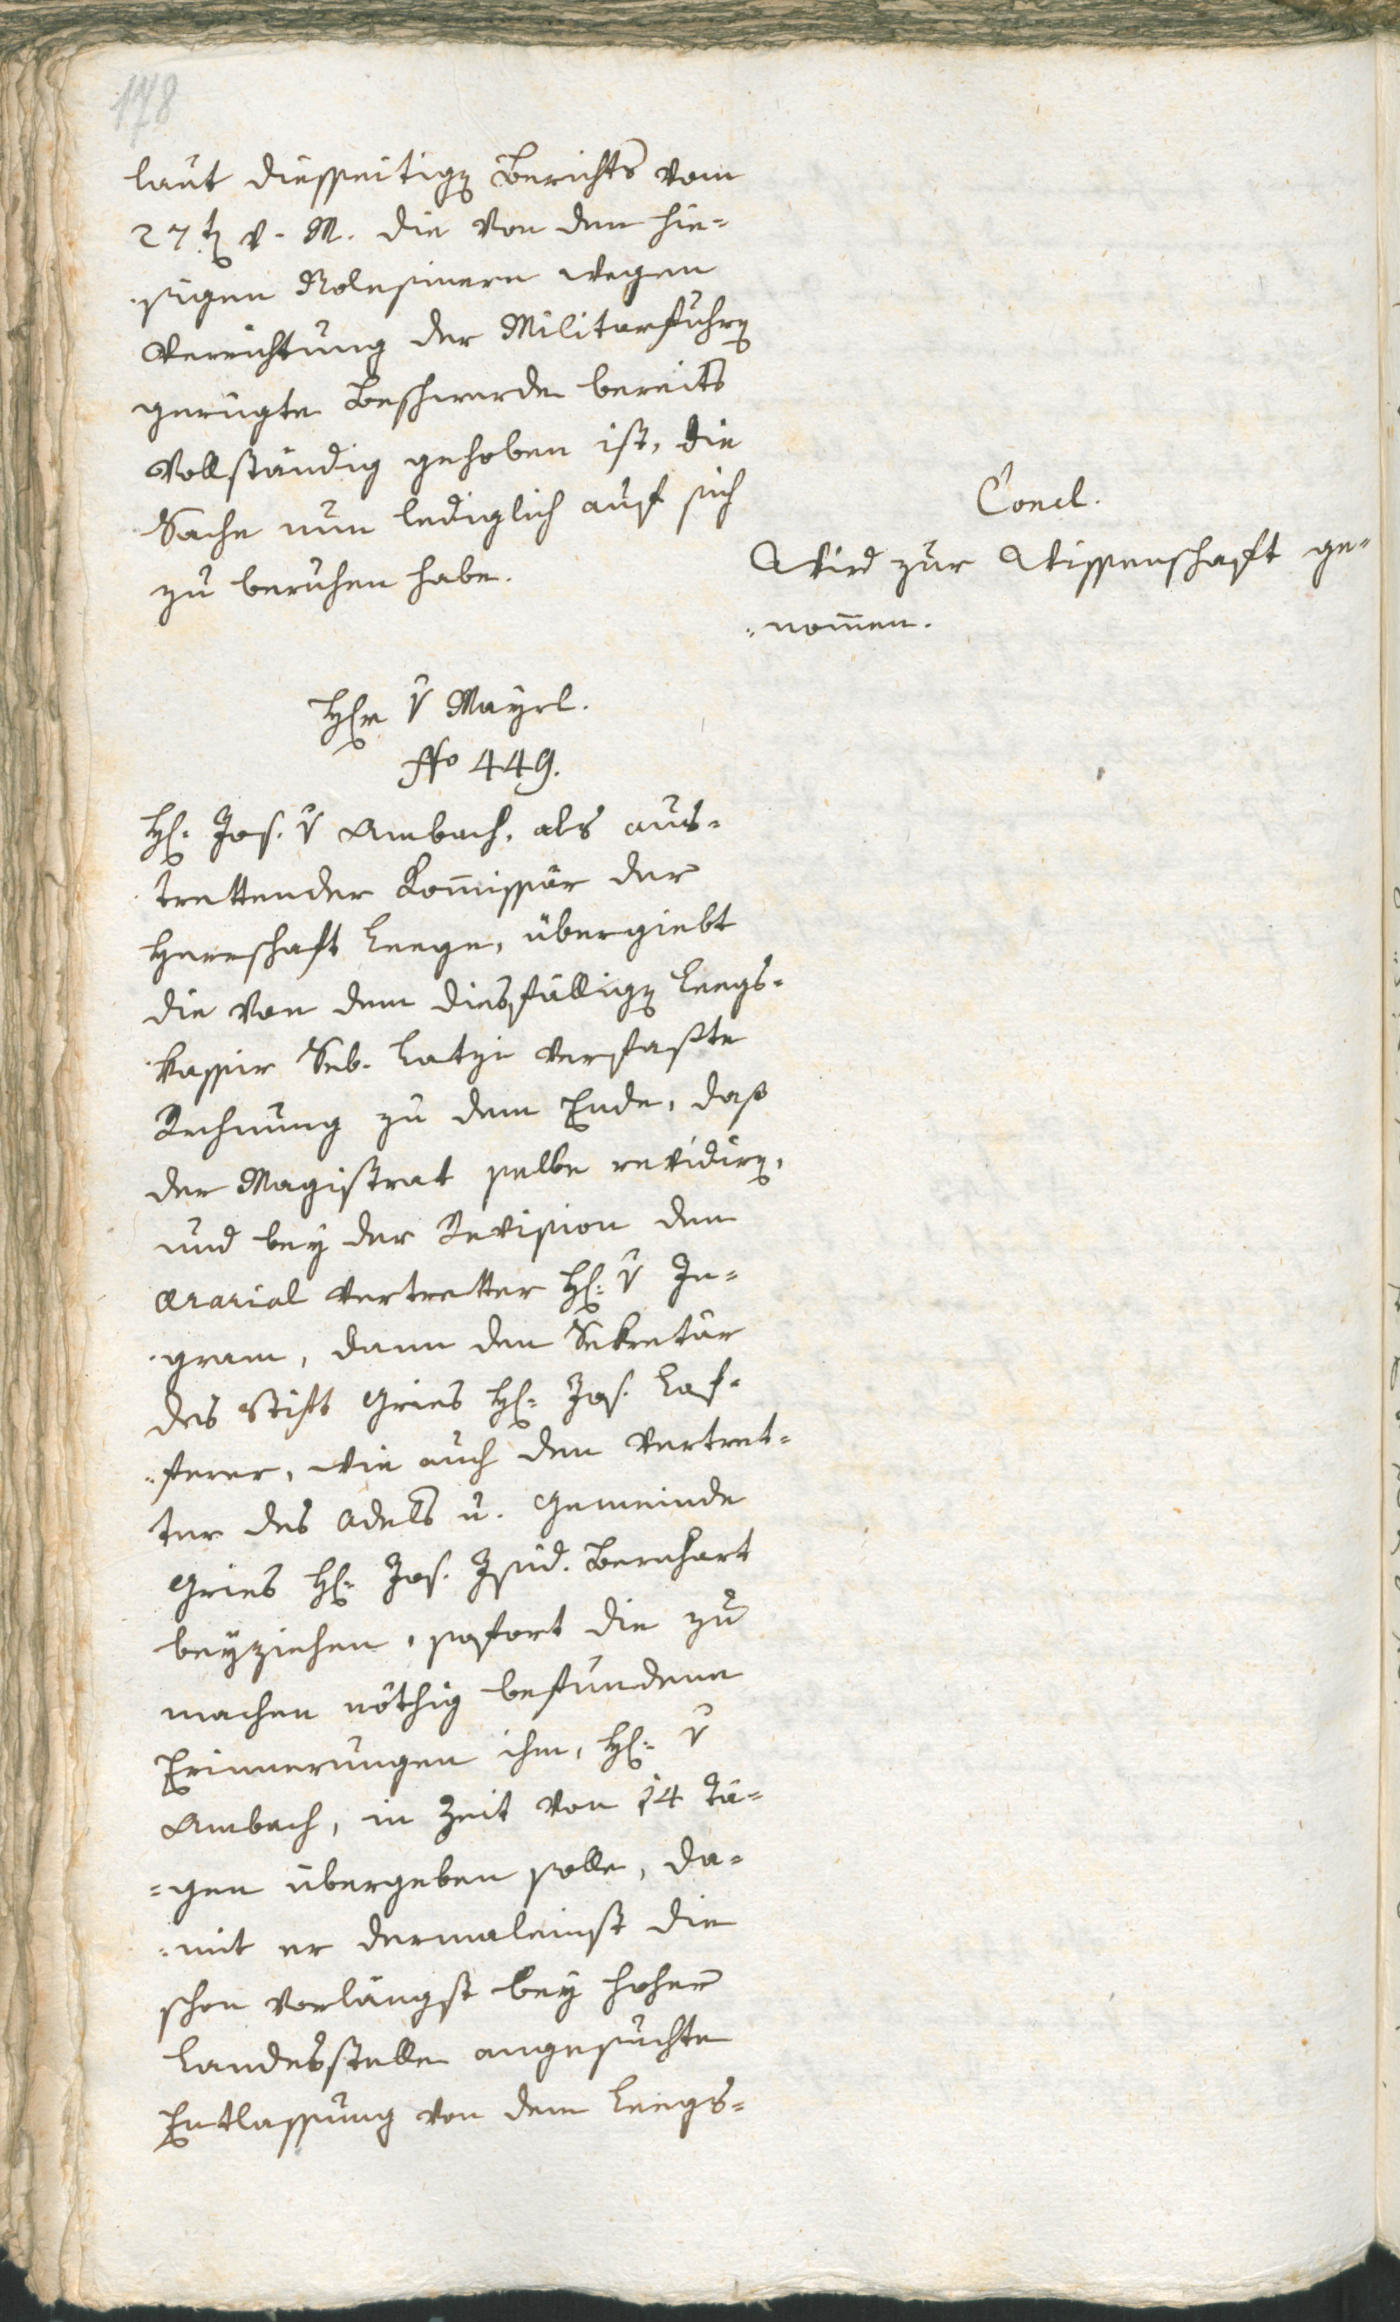 178
laut diesseitigen Berichts vom
27ten v. M. die von den hie=
sigen Rolesinern wegen
Verrichtung der Militarfuhren
gerügte Beschwerde bereits
vollständig gehoben ist, die
Sache nun lediglich auf sich
zu beruhen habe.
Concl.
Wird zur Wissenschaft ge=
=nom̅en.
Hhr v Mayrl.
No 449.
H: Jos. v Ambach, als aus=
trettender Kom̅issär der
Herrschaft Leege, übergiebt
die von dem diesfälligen Leegs=
kassir Seb. Latzi verfaßte
Rechnung zu dem Ende, daß
der Magistrat selbe revidiren,
und bey der Revision den
Ararial Vertretter H: v In=
gram, dann den Sekretär
des Stift Gries H: Jos. Laf=
=ferer, wie auch den Vertret=
ter des Adels u. Gemeinde
Gries H: Jos. Isid. Bernhart
beyziehen, sofort die zu
machen nöthig befundene
Erinnerungen ihm, H: v
Ambach, in Zeit von 14 Tä=
=gen übergeben solle, da=
=mit er dermaleinst die
schon vorlängst bey hoher
Landesstelle angesuchte
Entlassung von dem Leegs=